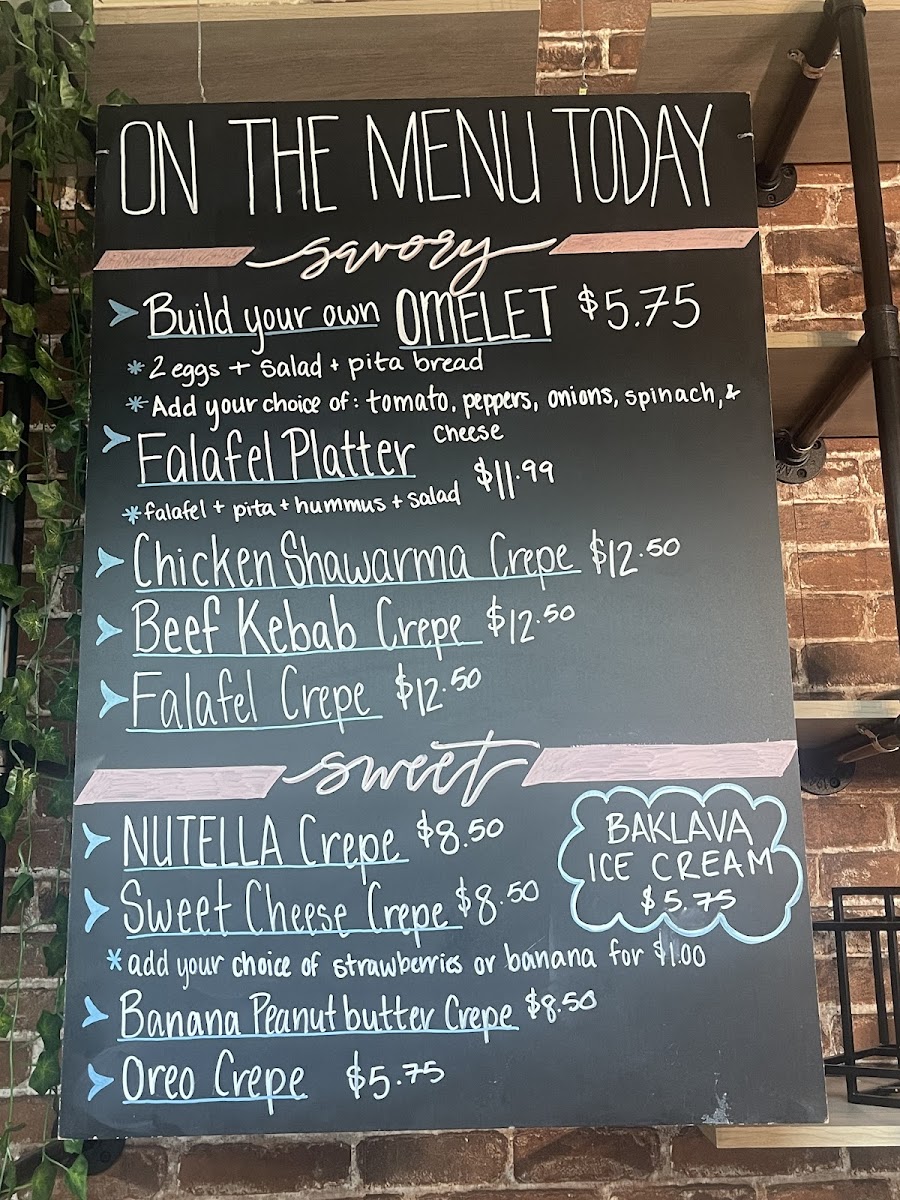 ON THE MENU TODAY
savory
Build your own OMELET $5.75
*2 eggs + salad + pita bread
*Add your choice of: tomato, peppers, onions, spinach, &
cheese
Falafel Platter $11.99
*falafel + pita + hummus + salad
Chicken Shawarma Crepe $12.50
Beef Kebab Crepe $12.50
Falafel Crepe $12.50
sweet
NUTELLA Crepe $8.50
Sweet Cheese Crepe $8.50
*add your choice of strawberries or banana for $1.00
Banana Peanut butter Crepe $8.50
Oreo Crepe $5.75
BAKLAVA
ICE CREAM
$5.75